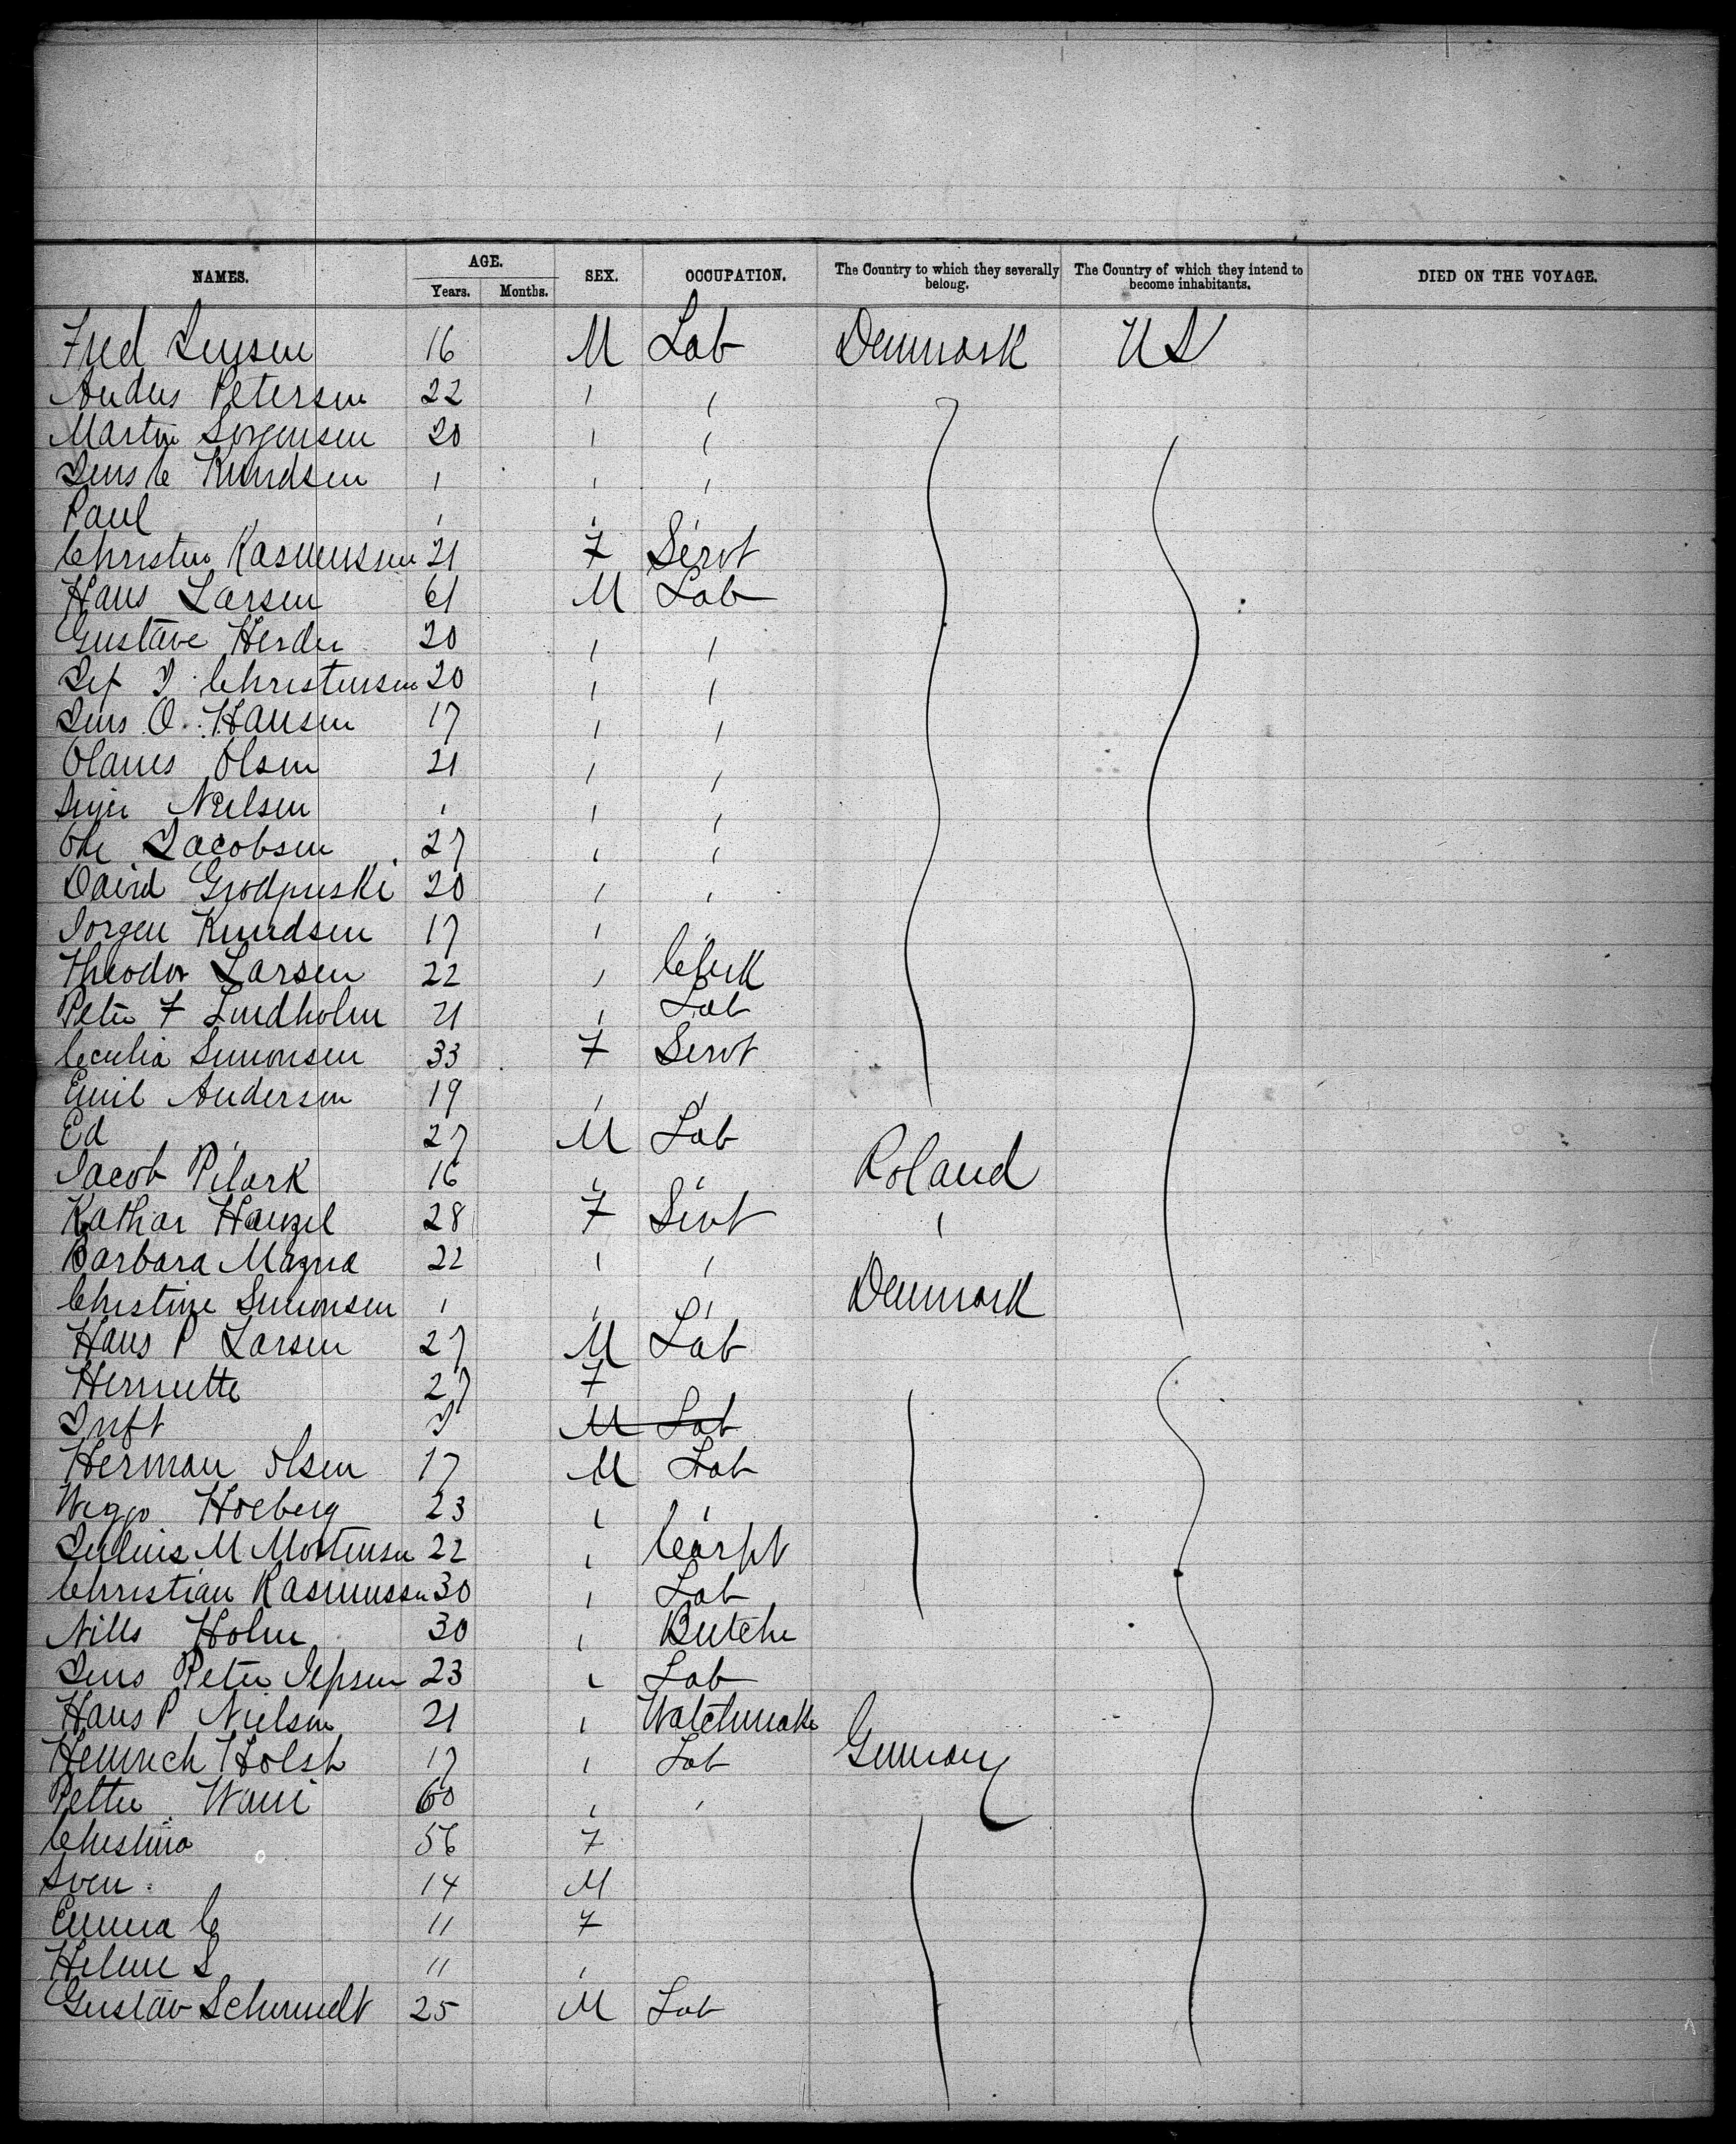 NAMES. AGE. SEX. OCCUPATION. The Country to which they severally belong. The Country of which they intend to become inhabitants. DIED ON THE VOYAGE.
Years. Months.
Fred Jensen 16 M Lab Denmark US
Andus Petersen 22 " "
Martin Sorgensen 20 " "
Jens C Knudsen " " "
Paul " " " "
Christen Rasmussen 21 F Servt
Hans Larsen 61 M Lab
Gustave Herder 20 " "
J. Christensen 20 " "
Jens O. Hansen 17 " "
Olaves Olsen 21 " "
Nielsen " " "
Ole Jacobsen 27 " "
David 20 " "
Jorgen Knudsen 17 " "
Theodor Larsen 22 " Clerk
Peter F Lindholm 21 " Lab
Cecilia Simonsen 33 F Servt
Emil Andersen 19 " "
Ed " 27 M Lab
Jacob Pilark 16 " " Poland
Kathar Hanzel 28 F Servt "
Barbara Mazna 22 " "
Christine Simonsen " " " Denmark
Hans P Larsen 27 M Lab
Henriette 27 F
Inft M Lab
Herman Olsen 17 M Lab
Wiggo Hoeberg 23 " "
Julius M Mortensen 22 " Carpt
Christian Rasmussen 30 " Lab
Nills Holm 30 " Butche
Jens Peter Jepsen 23 " Lab
Hans P Nielsen 21 " Watchmake
Heinrich Holsh 17 " Lab Germany
Petter 60 " "
Christina 56 F
Sven 14 M
Emma C 11 F
Helene S 11 "
Gustav Schmidt 25 M Lab